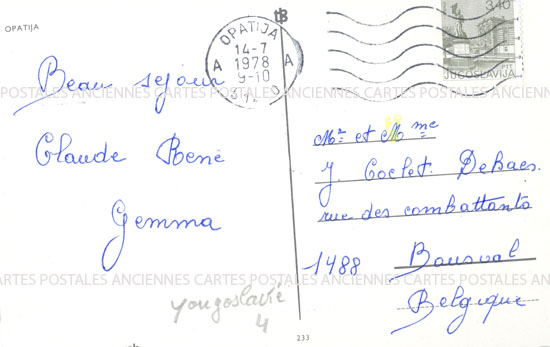 OPATIJA
Beau sejour
Claude René
Gemma
yougoslavie
4
233
OPATIJA
14-7
1978
9-10
A A
3,40
JUGOSLAVIJA
Mr et Mme
J. Coclet. DeBaes.
rue des combattants
1488 Bousval
Belgique
CARTES POSTALES ANCIENNES CARTES POSTALES ANCIENNES CARTES POSTALES
CARTES POSTALES ANCIENNES CARTES POSTALES ANCIENNES CARTES POSTALES